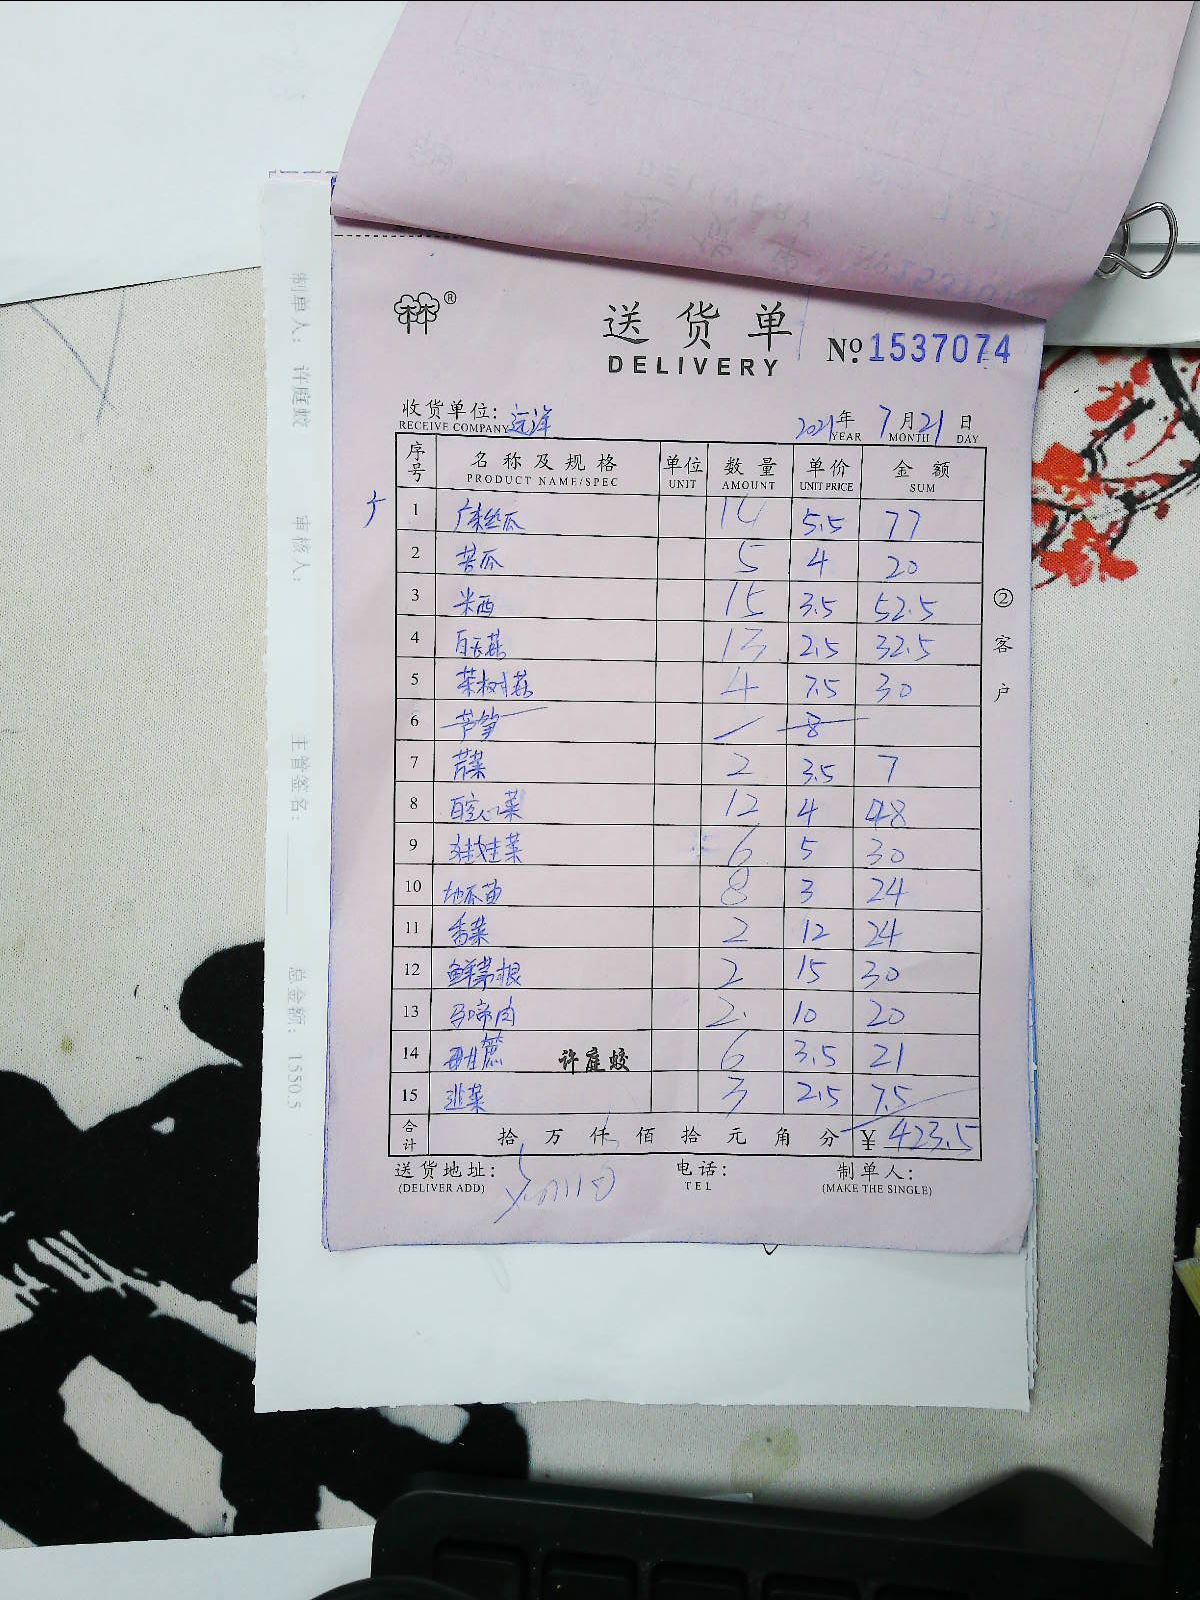 送货单
DELIVERY
№ 1537074
收货单位: 远洋 2021年 7月21日
RECEIVE COMPANY YEAR MONTH DAY
序号 名称及规格 单位 数量 单价 金额
PRODUCT NAME/SPEC UNIT AMOUNT UNIT PRICE SUM
1 广东丝瓜 14 5.5 77
2 苦瓜 5 4 20
3 米西 15 3.5 52.5
4 白玉菇 13 2.5 32.5
5 茶树菇 4 7.5 30
6 芦笋 8
7 芹菜 2 3.5 7
8 白空心菜 12 4 48
9 娃娃菜 6 5 30
10 地瓜苗 8 3 24
11 香菜 2 12 24
12 鲜茅根 2 15 30
13 马啼肉 2 10 20
14 甘蔗 许庭蛟 6 3.5 21
15 韭菜 3 2.5 7.5
合计 拾 万 仟 佰 拾 元 角 分 ¥ 423.5
送货地址: 电话: 制单人:
(DELIVER ADD) TEL (MAKE THE SINGLE)
② 客户
制单人: 许庭蛟 审核人: 主管签名: 总金额: 1550.5